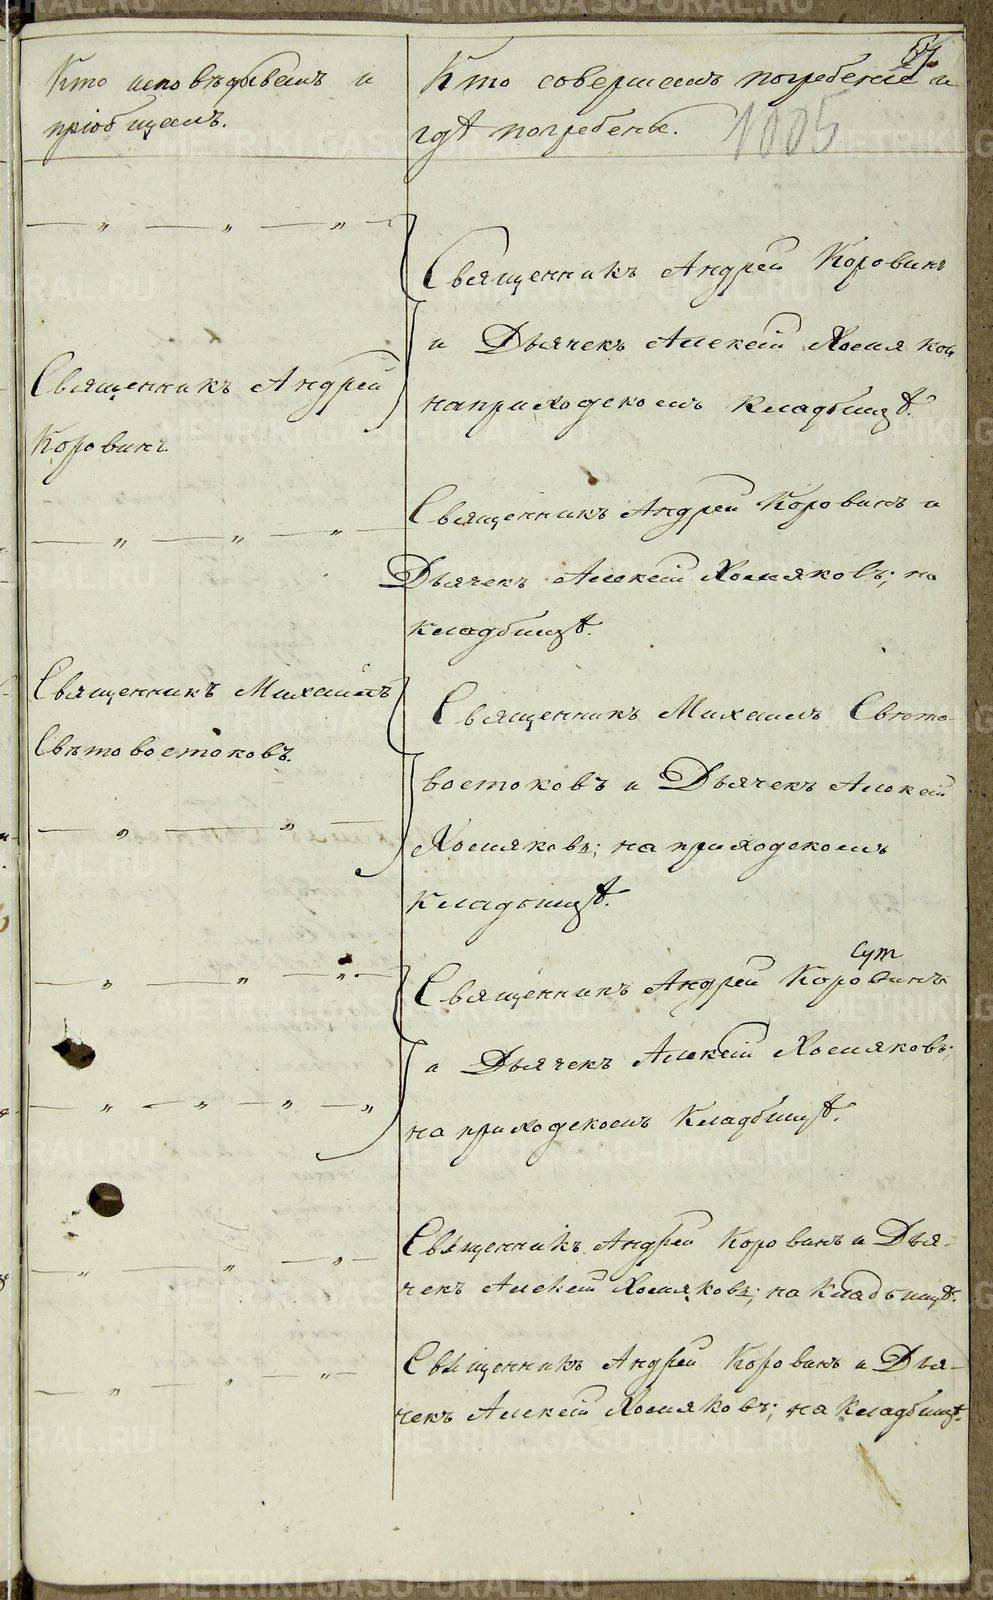 Кто исповѣдывалъ и
пріобщалъ.
Кто совершалъ погребеніе и
гдѣ погребены.
1005
— „ — „ — „ —
Священникъ Андрей
Коровинъ.
Священникъ Андрей Коровинъ
и Дьячекъ Алексій Хомяковъ
на приходскомъ кладбищѣ.
— „ — „ — „ —
Священникъ Андрей Коровинъ и
Дьячекъ Алексій Хомяковъ; на
кладбищѣ.
Священникъ Михаилъ
Свѣтовостоковъ.
— „ — „ —
Священникъ Михаилъ Свѣто-
востоковъ и Дьячекъ Алексій
Хомяковъ; на приходскомъ
кладбищѣ.
— „ — „ — „ —
— „ — „ — „ — „
Священникъ Андрей Коровинъ
и Дьячекъ Алексій Хомяковъ;
на приходскомъ кладбищѣ.
— „ — „ — „ —
Священникъ Андрей Коровинъ и Дья-
чекъ Алексій Хомяковъ; на кладбищѣ.
— „ — „ — „ —
Священникъ Андрей Коровинъ и Дья-
чекъ Алексій Хомяковъ; на кладбищѣ.
METRIKI.GASO-URAL.RU